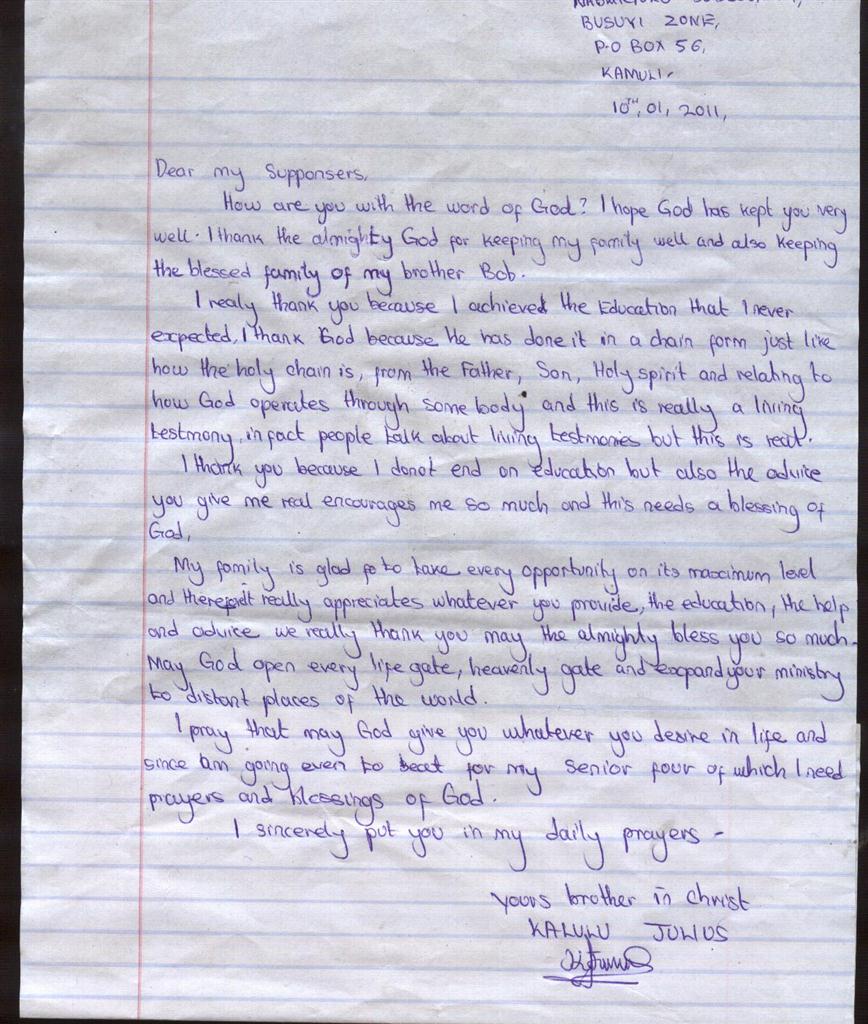 BUSUYI ZONE,
P.O BOX 56,
KAMULI.
10TH, 01, 2011,
Dear my Supponsers,
How are you with the word of God? I hope God has kept you very
well. I thank the almighty God for keeping my family well and also keeping
the blessed family of my brother Bob.
I realy thank you because I achieved the Education that I never
expected, I thank God because He has done it in a chain form just like
how the holy chain is, from the Father, Son, Holy spirit and relating to
how God operates through some body and this is really a living
testmony, infact people talk about living testmonies but this is real.
I thank you because I donot end on education but also the advice
you give me real encourages me so much and this needs a blessing of
God,
My family is glad to take every opportunity on its maximum level
and really appreciates whatever you provide, the education, the help
and advice we really thank you may the almighty bless you so much.
May God open every life gate, heavenly gate and expand your ministry
to distant places of the world.
I pray that may God give you whatever you desire in life and
since am going even to seat for my senior four of which I need
prayers and blessings of God.
I sincerely put you in my daily prayers -
yours brother in christ
KALULU JULIUS